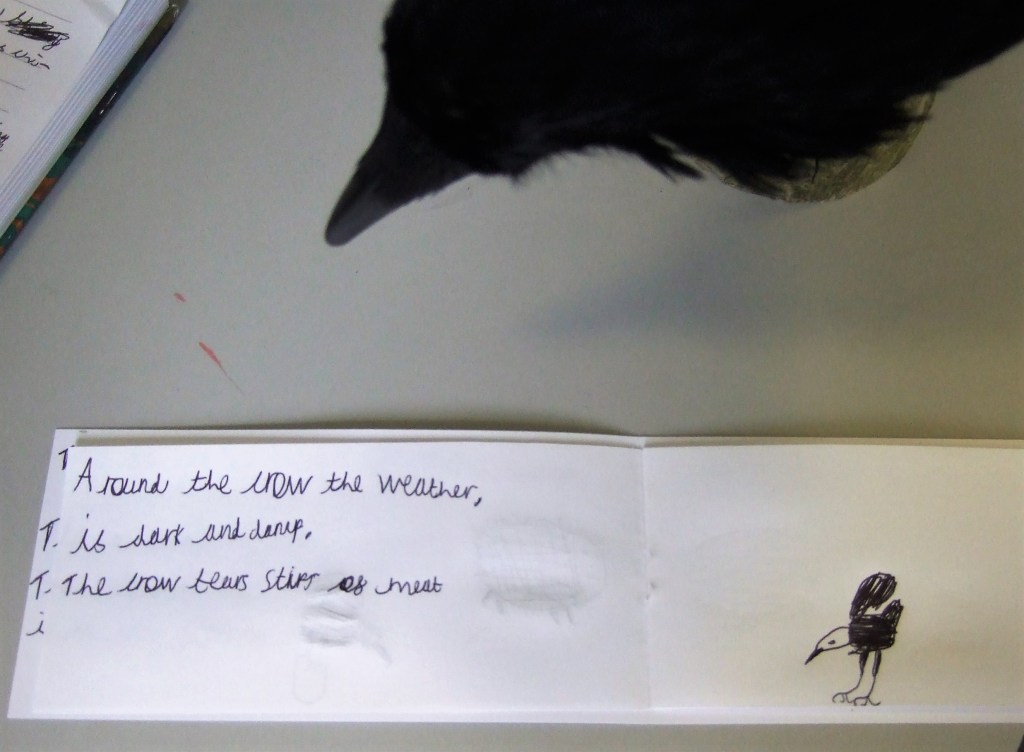 T
Around the crow the weather,
T. is dark and damp.
T. The crow tears strips of meat
i